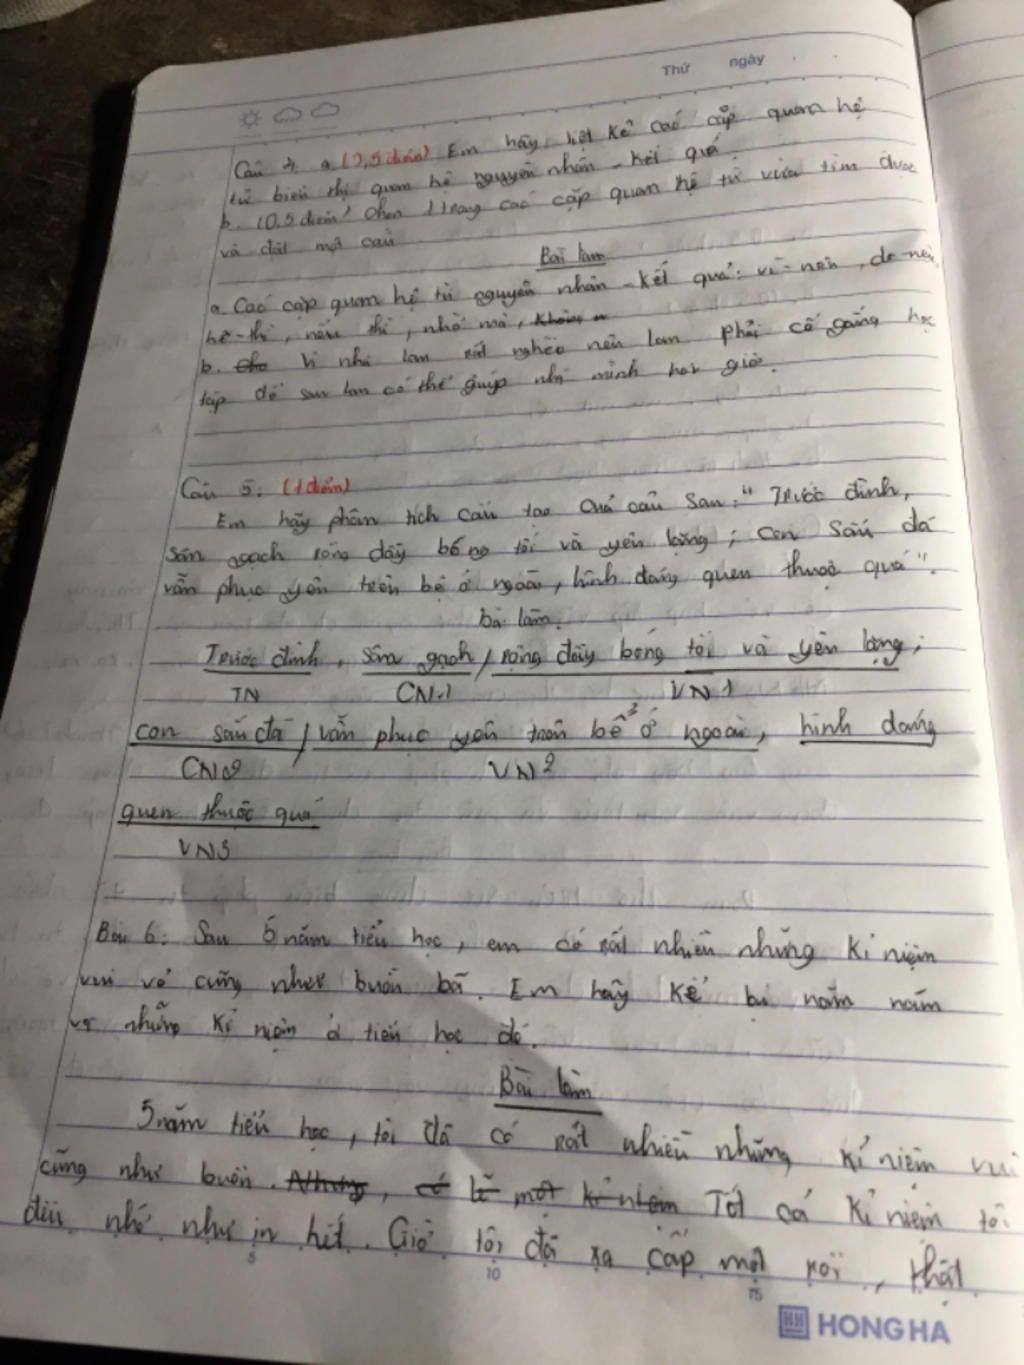 Thứ ngày
Câu 4. a. (0,5 điểm) Em hãy liệt kê các cặp quan hệ
từ biểu thị quan hệ nguyên nhân - kết quả.
b. (0,5 điểm) Chọn 1 trong các cặp quan hệ từ vừa tìm được
và đặt một câu
Bài làm
a. Các cặp quan hệ từ nguyên nhân - kết quả: vì - nên, do - nên,
hễ - thì, nếu thì, nhờ mà,
b. Vì nhà lan rất nghèo nên lan phải cố gắng học
tập để sau lan có thể giúp nhà mình
Câu 5: (1 điểm)
Em hãy phân tích cấu tạo của câu sau: " Trước đình,
sân gạch rộng đầy bóng tối và yên lặng; con sấu đá
vẫn phục yên trên bệ ở ngoài, hình dáng quen thuộc quá".
bài làm.
Trước đình, sân gạch / rộng đầy bóng tối và yên lặng;
TN CN1 VN1
con sấu đá / vẫn phục yên trên bệ ở ngoài, hình dáng
CN2 VN2
quen thuộc quá
VN3
Bài 6: Sau 5 năm tiểu học, em có rất nhiều những kỉ niệm
vui vẻ cũng như buồn bã. Em hãy kể lại năm năm
và những kỉ niệm ở tiểu học đó.
Bài làm
5 năm tiểu học, tôi đã có rất nhiều những kỉ niệm vui
cũng như buồn. Nhưng, có lẽ một kỉ niệm Tất cả kỉ niệm tôi
đều nhớ như in hết. Giờ tôi đã xa cấp một rồi, thật
5 10 15
HONG HA